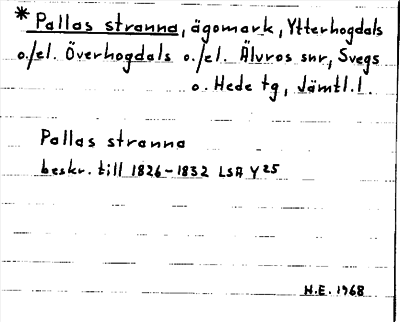 * Pallas stranna, ägomark, Ytterhogdals
o./el. Överhogdals o./el. Älvros snr, Svegs
o. Hede tg, Jämtl.l.
Pallas stranna
beskr. till 1826-1832 LSA Y25
H.E. 1968